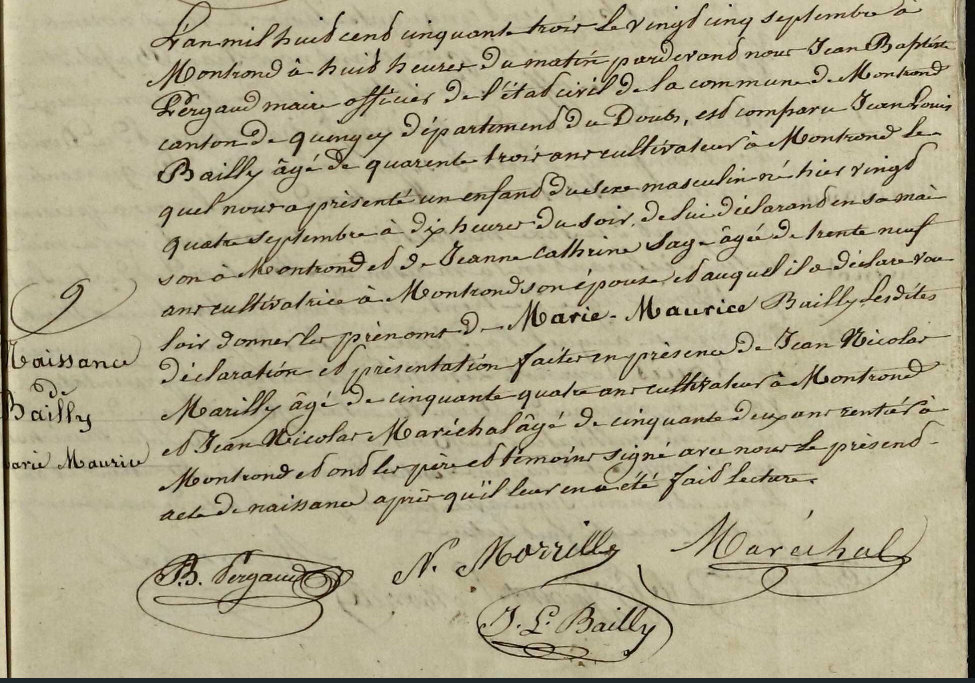 L'an mil huit cent cinquante trois le vingt cinq septembre à
Montrond à huit heures du matin pardevant nous Jean Baptiste
Pergaud maire officier de l'état civil de la commune de Montrond
canton de quingey département du Doubs, est comparu Jean Louis
Bailly âgé de quarente trois ans cultivateur à Montrond le
quel nous a présenté un enfant du sexe masculin né hier vingt
quatre septembre à dix heures du soir, de lui déclarant en sa mai
son à Montrond et de Jeanne Cathrine Sage âgée de trente neuf
ans cultivatrice à Montrond son épouse, et auquel il a déclaré vou
loir donner les prénoms de Marie-Maurice Bailly. Lesdites
déclaration et présentation faites en présence de Jean Nicolas
Marilly âgé de cinquante quatre ans cultivateur à Montrond
et Jean Nicolas Maréchal âgé de cinquante deux ans rentier à
Montrond et ont les père et témoins signé avec nous le présent
acte de naissance après qu'il leur en a été fait lecture.
9
Naissance
de
Bailly
Marie Maurice
B. Pergaud N. Morrilly Maréchal
J. L. Bailly